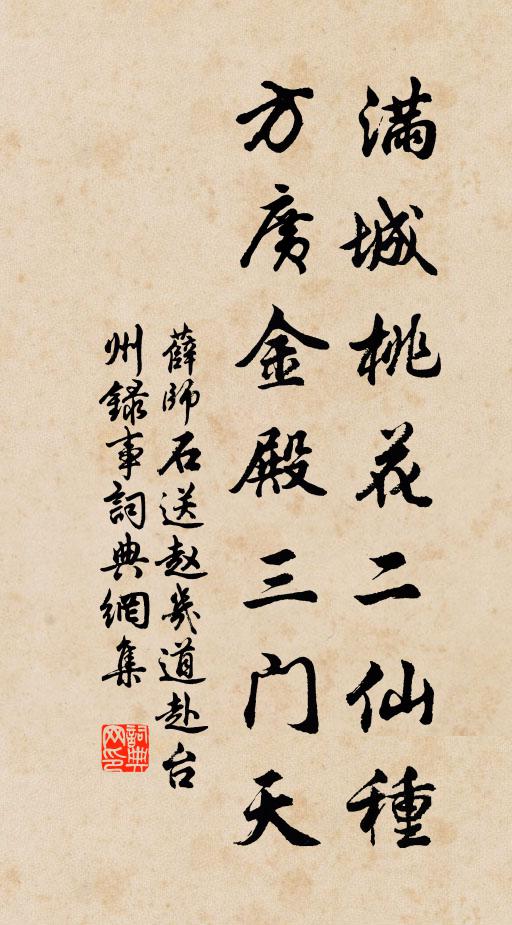 满城桃花二仙種
方廣金殿三门天
薛師石送赵幾道赴台
州録事詞典網集
詞典网印